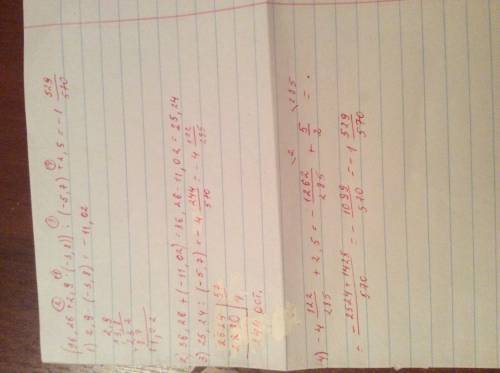 ② ③ ① ④
(36,26+2,9·(-3,8)):(-5,7)+2,5=-1 529/570
1) 2,9·(-3,8)=-11,02
2,9
3,8
11,02
2) 36,26+(-11,02)=36,26-11,02=25,24
3) 25,24:(-5,7)=-4 244/570=-4 122/285
2524|57
2280|4
244 ост.
4) -4 122/285+2,5=-1262/285+5/2=
=-2524+1425/570=-1099/570=-1 529/570